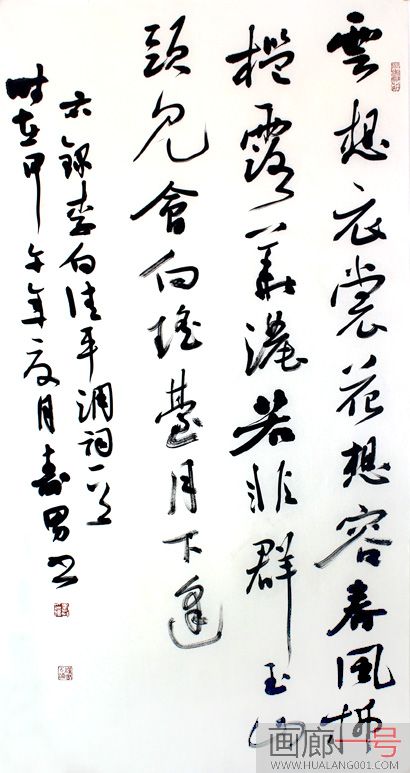 雲想衣裳花想容春風拂
檻露華濃若非群玉山
頭見會向瑤臺月下逢
示錄李白清平调词一首
时在甲午年夏月壽男書
画廊一号
WWW.HUALANG001.COM